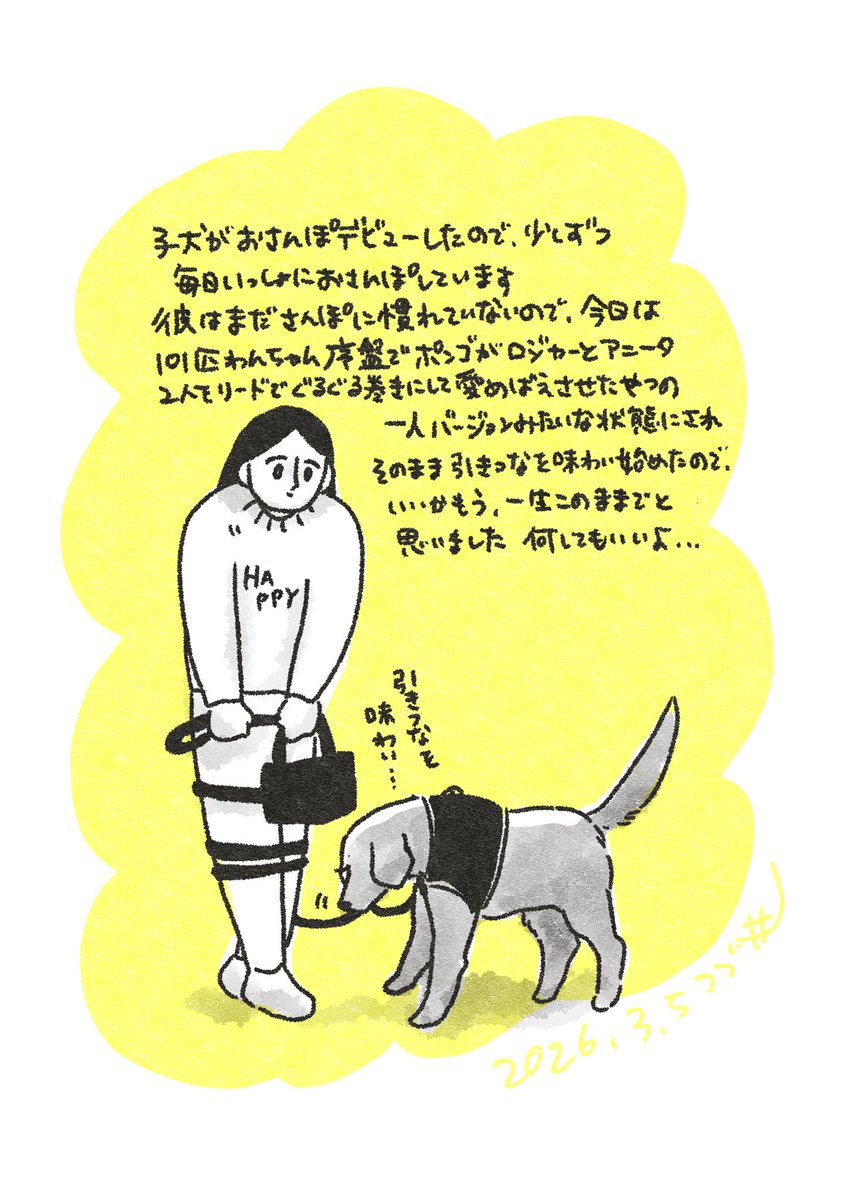 子犬がおさんぽデビューしたので、少しずつ
毎日いっしょにおさんぽしています
彼はまださんぽに慣れていないので、今日は
101匹わんちゃん序盤でポンゴがロジャーとアニータ
2人をリードでぐるぐる巻きにして愛めばえさせたやつの
一人バージョンみたいな状態にされ
そのまま引きつなを味わい始めたので、
いいかもう、一生このままでと
思いました 何してもいいよ…
HA
PPY
引きつなを
味わい…
2026.3.5 つづ井